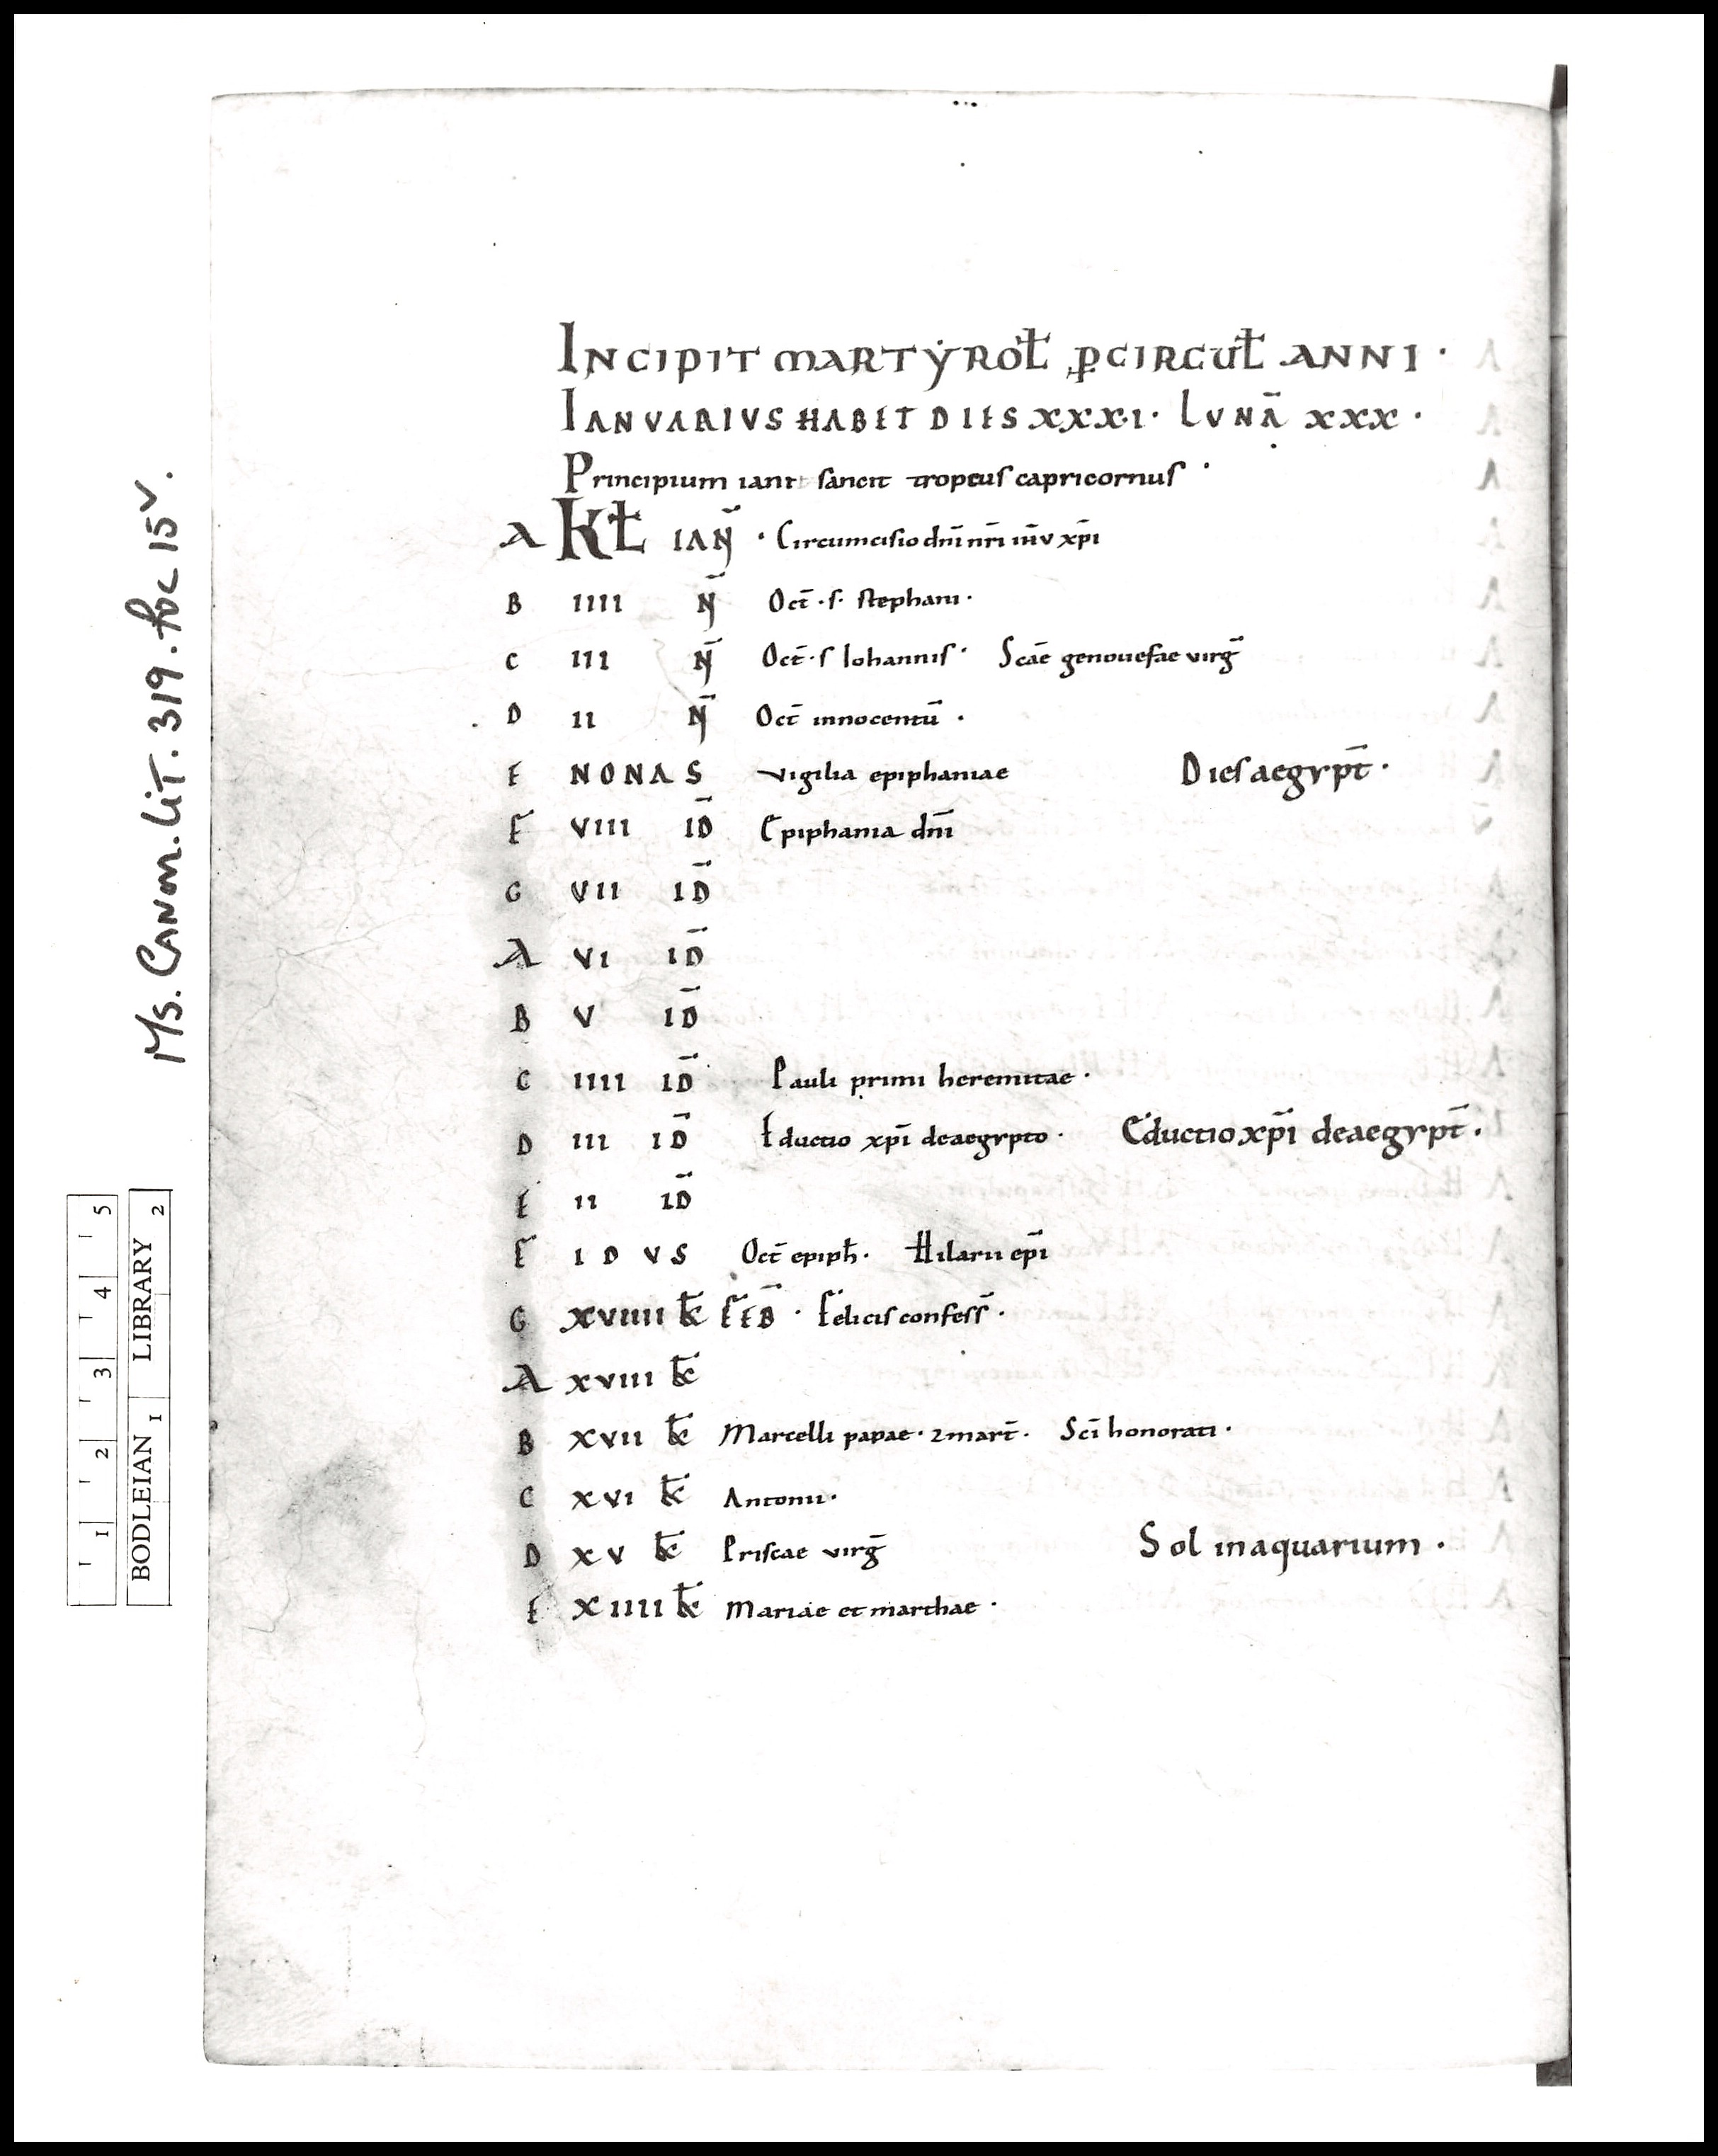 INCIPIT MARTYROŁ P̱ CIRCUŁ ANNI ·
IANVARIVS HABET DIES XXX·I· LVNĀ XXX ·
Principium iani sancit tropeus capricornus ·
A KŁ IAN̄ · Circumcisio dn̄i nr̄i iūv xp̄i
B IIII N̄ Oct̄ · s · stephani ·
C III N̄ Oct̄ · s Iohannis · Scāe genouefae virḡ
D II N̄ Oct̄ innocentū ·
E NONAS vigilia epiphaniae Dies aegypt̄ ·
F VIII ID̄ Epiphania dn̄i
G VII ID̄
A VI ID̄
B V ID̄
C IIII ID̄ Pauli primi heremitae ·
D III ID̄ Eductio xp̄i de aegypto · Eductio xp̄i de aegypt̄ ·
E II ID̄
F IDVS Oct̄ epiph̄ · Hilarii ep̄i
G XVIIII k̄ FEB̄ · Felicis confess̄ ·
A XVIII k̄
B XVII k̄ Marcelli papae · 2 mart̄ · Sc̄i honorati ·
C XVI k̄ Antonii ·
D XV k̄ Priscae virḡ Sol in aquarium ·
E XIIII k̄ Mariae et marthae ·
Ms. CANON. LIT. 319. fol 15v.
1 2 3 4 5
BODLEIAN 1 LIBRARY 2